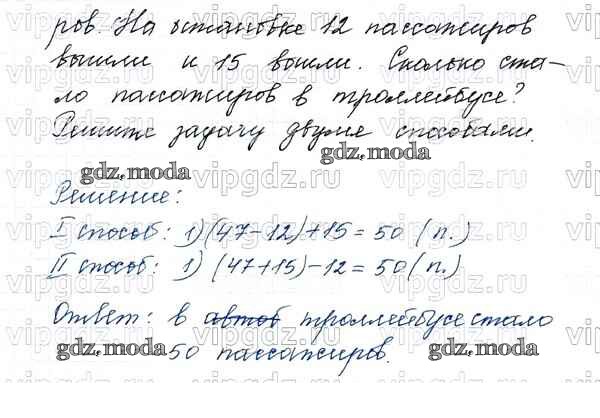 ров. На остановке 12 пассажиров
вышли и 15 вошли. Сколько ста-
ло пассажиров в троллейбусе?
Решите задачу двумя способами.
gdz.moda
gdz.moda
Решение:
I способ: 1) (47-12)+15=50 (п.)
II способ: 1) (47+15)-12=50 (п.)
Ответ: в автоб троллейбусе стало
50 пассажиров.
gdz.moda
gdz.moda
vipgdz.ru